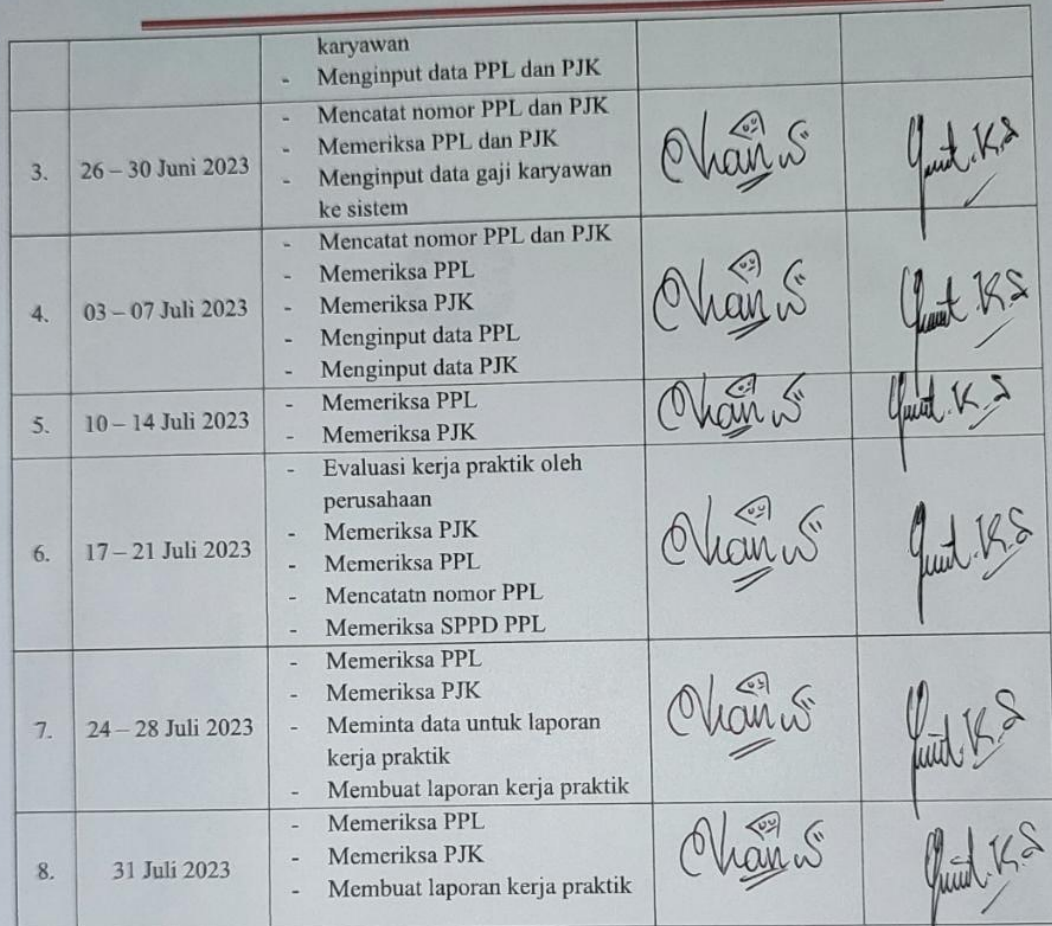 karyawan
- Menginput data PPL dan PJK
3.
26 – 30 Juni 2023
- Mencatat nomor PPL dan PJK
- Memeriksa PPL dan PJK
- Menginput data gaji karyawan
ke sistem
4.
03 – 07 Juli 2023
- Mencatat nomor PPL dan PJK
- Memeriksa PPL
- Memeriksa PJK
- Menginput data PPL
- Menginput data PJK
5.
10 – 14 Juli 2023
- Memeriksa PPL
- Memeriksa PJK
6.
17 – 21 Juli 2023
- Evaluasi kerja praktik oleh
perusahaan
- Memeriksa PJK
- Memeriksa PPL
- Mencatatn nomor PPL
- Memeriksa SPPD PPL
7.
24 – 28 Juli 2023
- Memeriksa PPL
- Memeriksa PJK
- Meminta data untuk laporan
kerja praktik
- Membuat laporan kerja praktik
8.
31 Juli 2023
- Memeriksa PPL
- Memeriksa PJK
- Membuat laporan kerja praktik